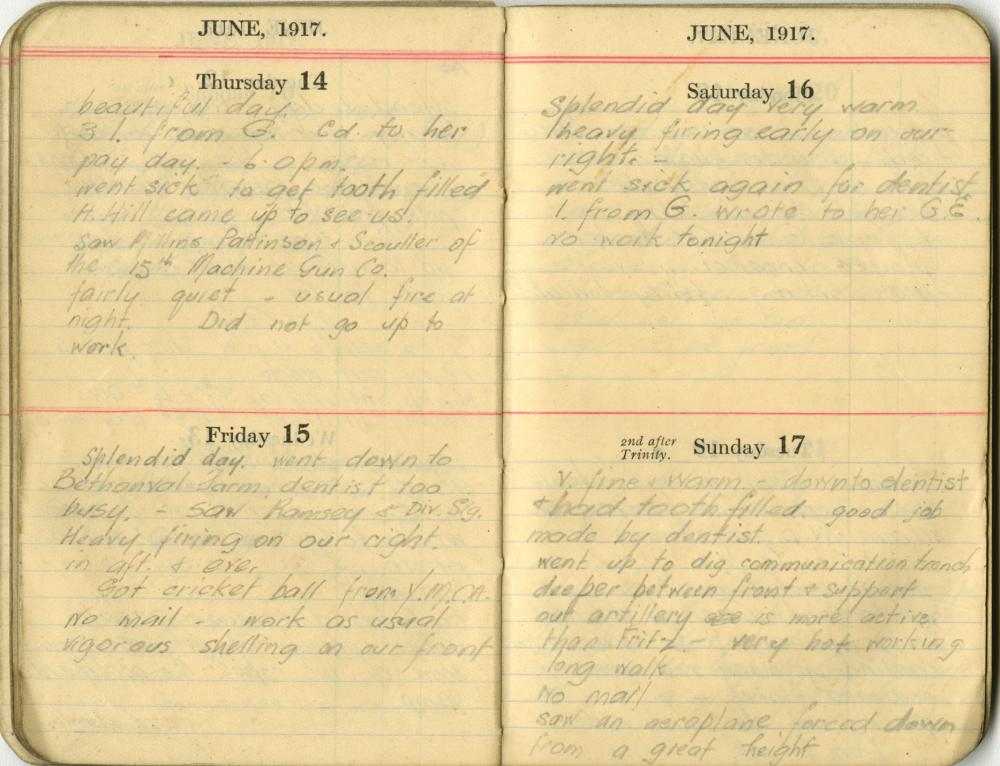 JUNE, 1917.
Thursday 14
beautiful day.
3 l. from G. Cd. to her
pay day. - 6.0 p.m.
"went sick" to get tooth filled
H. Hill came up to see us.
Saw Pattinson & Scouller of
the 15th Machine Gun Co.
fairly quiet - usual fire at
night. Did not go up to
work.
Friday 15
Splendid day. went down to
Bethonval Farm, dentist too
busy. - Saw Ramsey & Div. Sig.
Heavy firing on our right.
in aft. & eve,
Got cricket ball from Y.M.C.A.
No mail - work as usual
vigorous shelling on our front
JUNE, 1917.
Saturday 16
Splendid day very warm
heavy firing early on our
right. -
went sick again for dentist
1. from G. wrote to her G.E.
No work tonight
2nd after
Trinity. Sunday 17
V. fine & warm - down to dentist
& had tooth filled. good job
made by dentist.
went up to dig communication trench
deeper between front & support
our artillery is more active
than Fritz - very hot working
long walk
No mail
saw an aeroplane forced down
from a great height